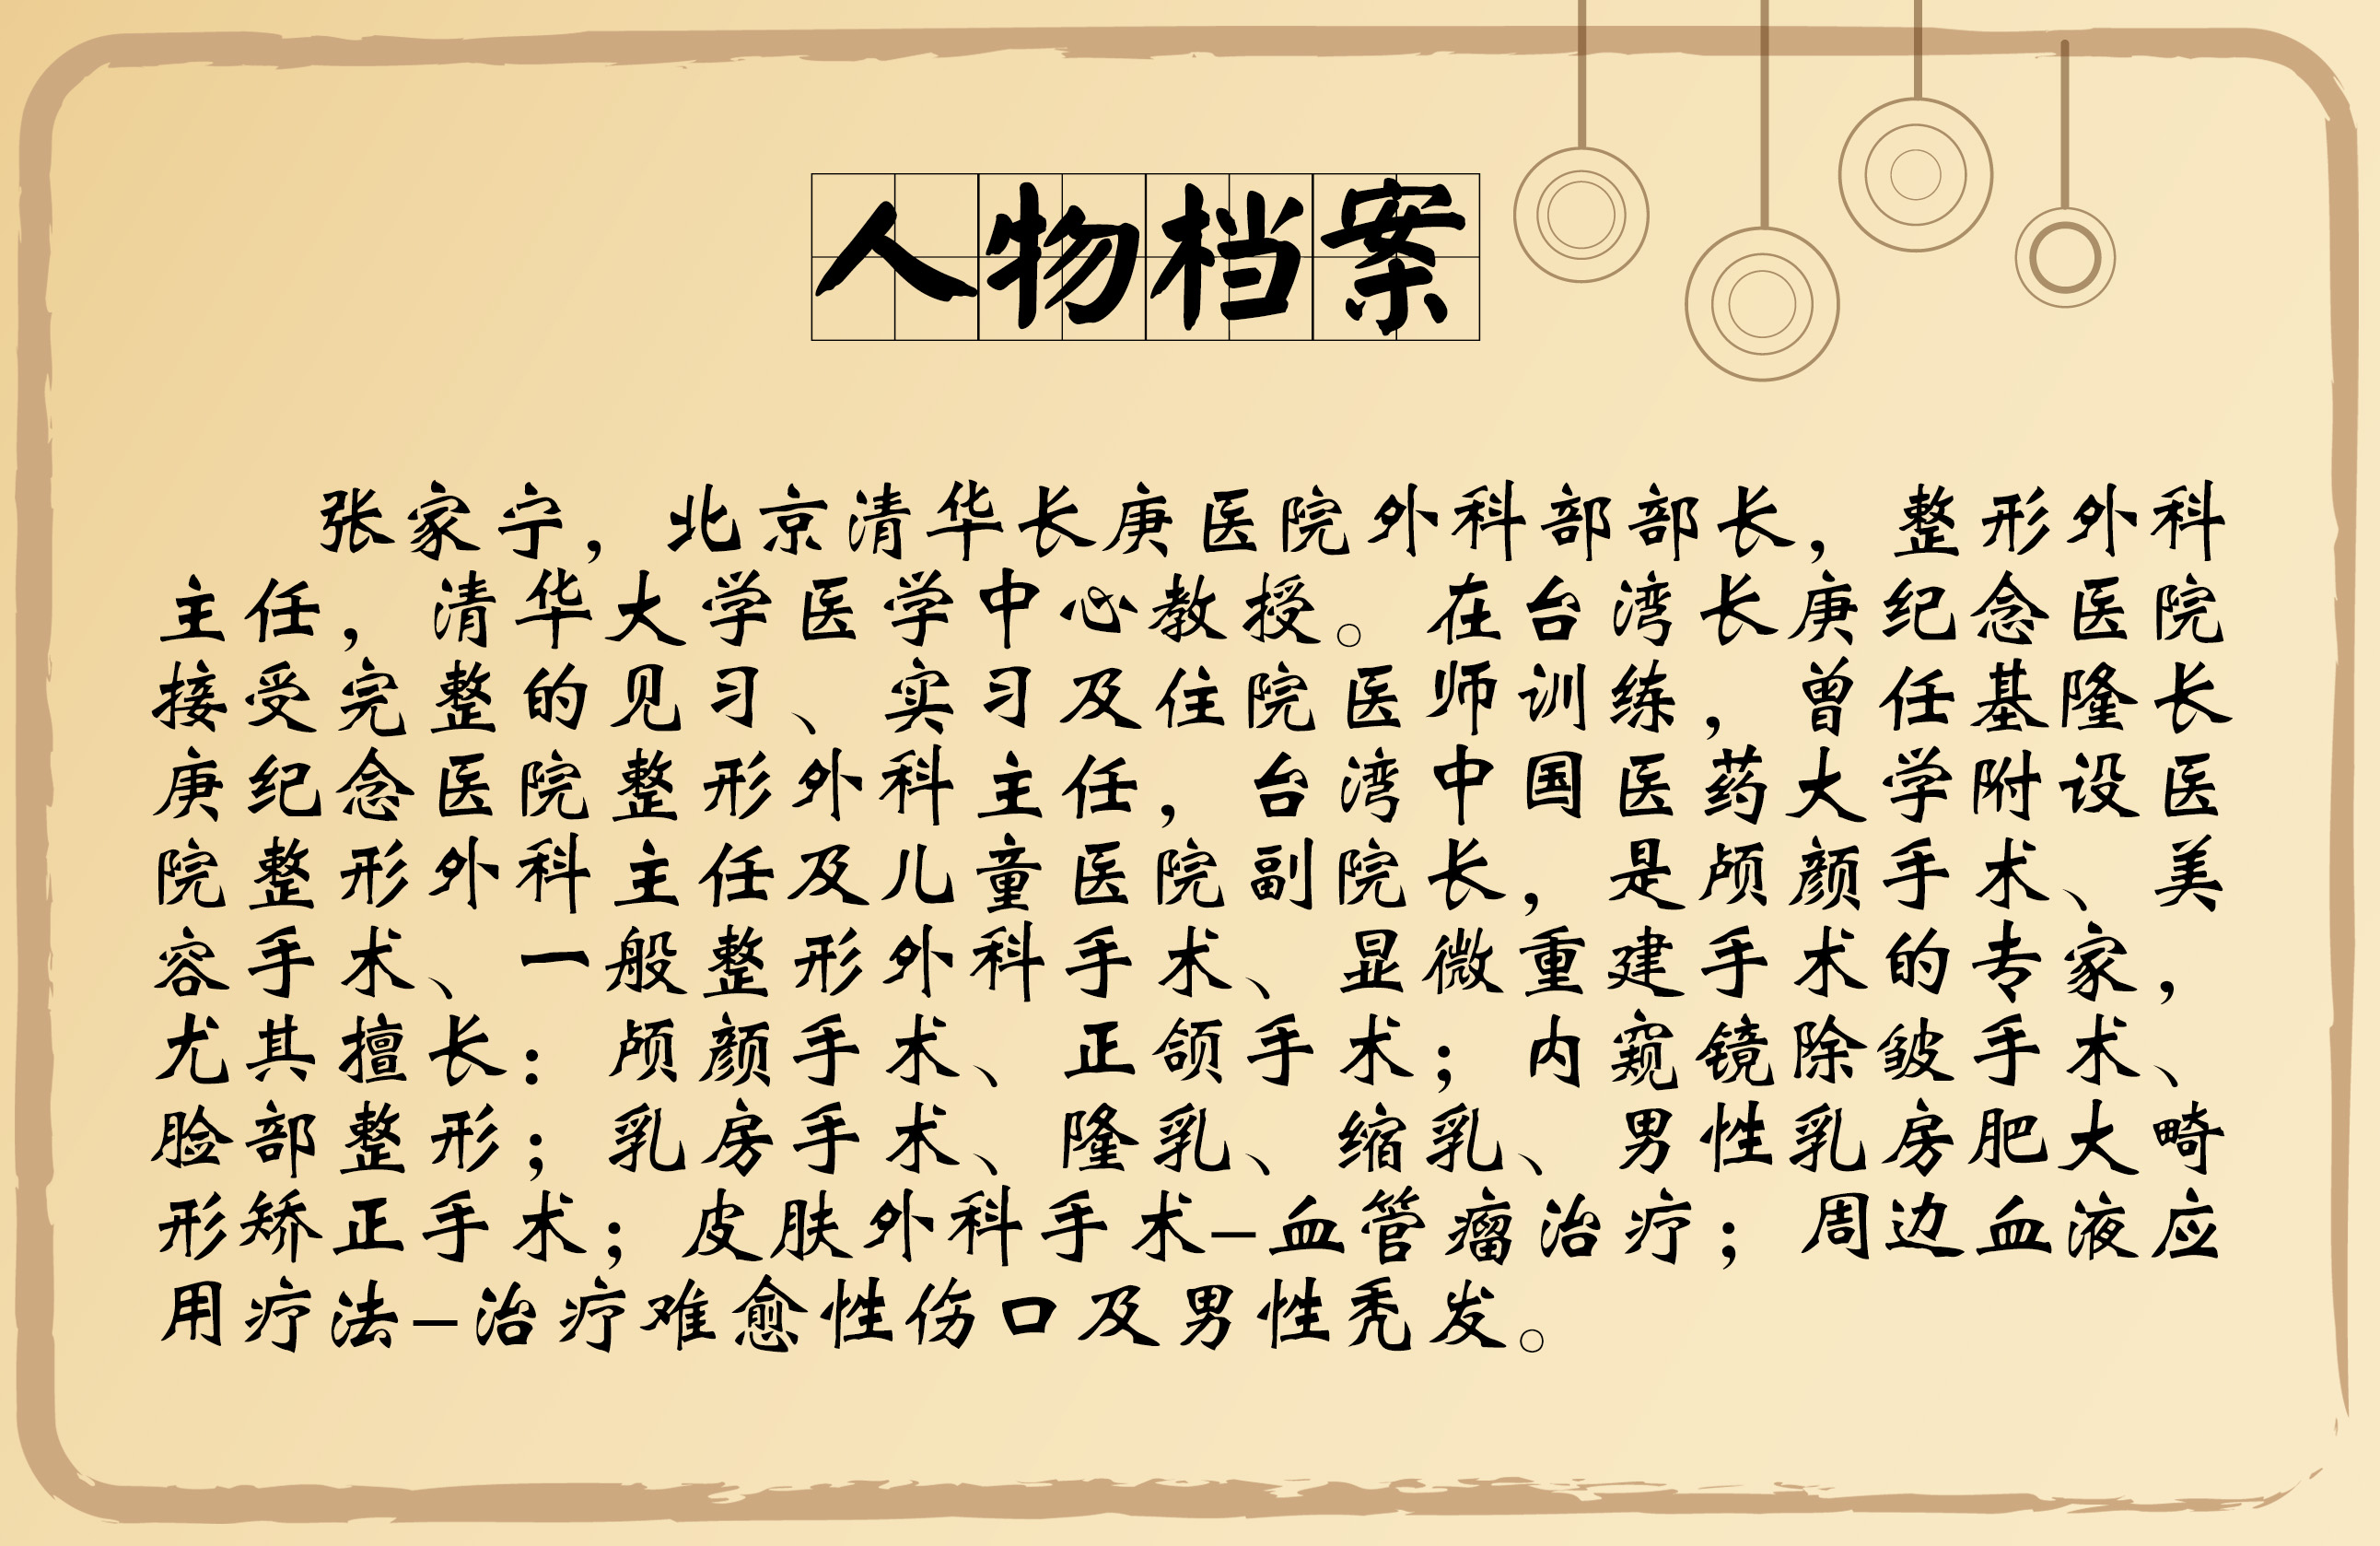 人物档案
张家宁，北京清华长庚医院外科部部长，整形外科
主任，清华大学医学中心教授。在台湾长庚纪念医院
接受完整的见习、实习及住院医师训练，曾任基隆长
庚纪念医院整形外科主任，台湾中国医药大学附设医
院整形外科主任及儿童医院副院长，是颅颜手术、美
容手术、一般整形外科手术、显微重建手术的专家，
尤其擅长：颅颜手术、正颌手术；内窥镜除皱手术、
脸部整形；乳房手术、隆乳、缩乳、男性乳房肥大畸
形矫正手术；皮肤外科手术–血管瘤治疗；周边血液应
用疗法–治疗难愈性伤口及男性秃发。